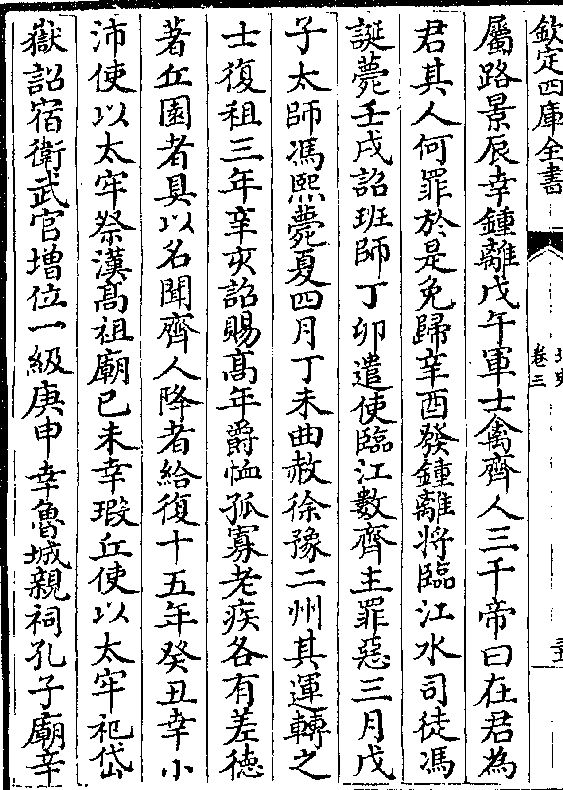 欽定四庫全書
北史
卷三
屬路景辰幸鍾離戊午軍士禽齊人三千帝曰在君為
君其人何罪於是免歸辛酉發鍾離將臨江水司徒馮
誕薨壬戌詔班師丁卯遣使臨江數齊主罪惡三月戊
子太師馮熙薨夏四月丁未曲赦徐豫二州其運轉之
士復租三年辛亥詔賜高年爵恤孤寡老疾各有差德
著丘園者具以名聞齊人降者給復十五年癸丑幸小
沛使以太牢祭漢高祖廟己未幸瑕丘使以太牢祀岱
嶽詔宿衛武官增位一級庚申幸魯城親祠孔子廟辛